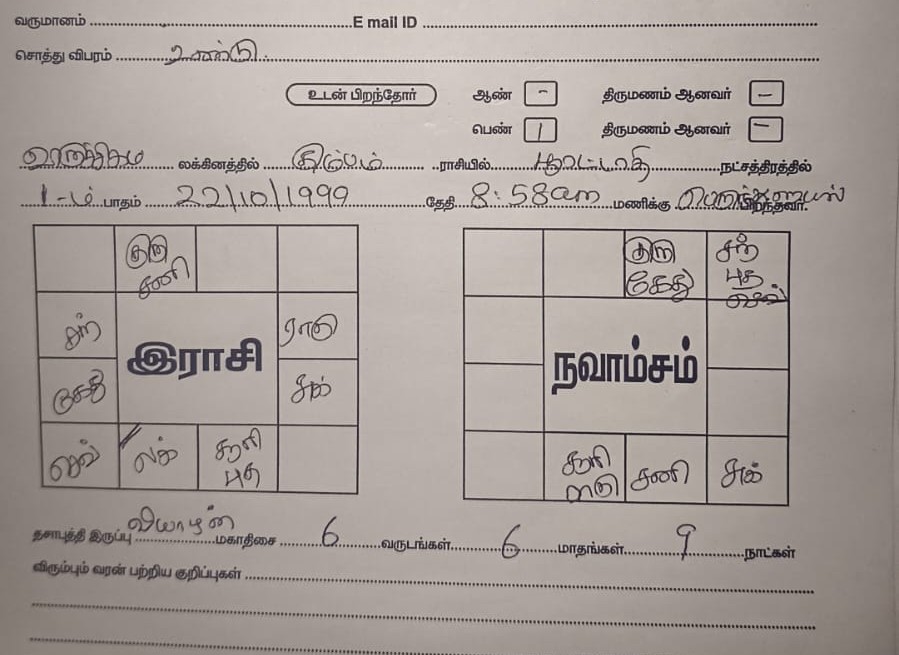 வருமானம் ........ E mail ID ........
சொத்து விபரம் ........ உண்டு.
உடன் பிறந்தோர் ஆண் - திருமணம் ஆனவர் -
பெண் 1 திருமணம் ஆனவர் -
லக்கினத்தில் கும்பம் ராசியில் பூரட்டாதி நட்சத்திரத்தில்
1-ம் பாதம் 22/10/1999 தேதி 8:58am மணிக்கு பிறந்தவர்.
குரு சனி
குரு கேது
சந் புத செவ்
சந்
ராகு
இராசி
நவாம்சம்
கேது
சுக்
செவ்
லக்
சூரி புத
சூரி ராகு
சனி
சுக்
தசாபுத்தி இருப்பு வியாழன் மகாதிசை 6 வருடங்கள் 6 மாதங்கள் 9 நாட்கள்
விரும்பும் வரன் பற்றிய குறிப்புகள் ........